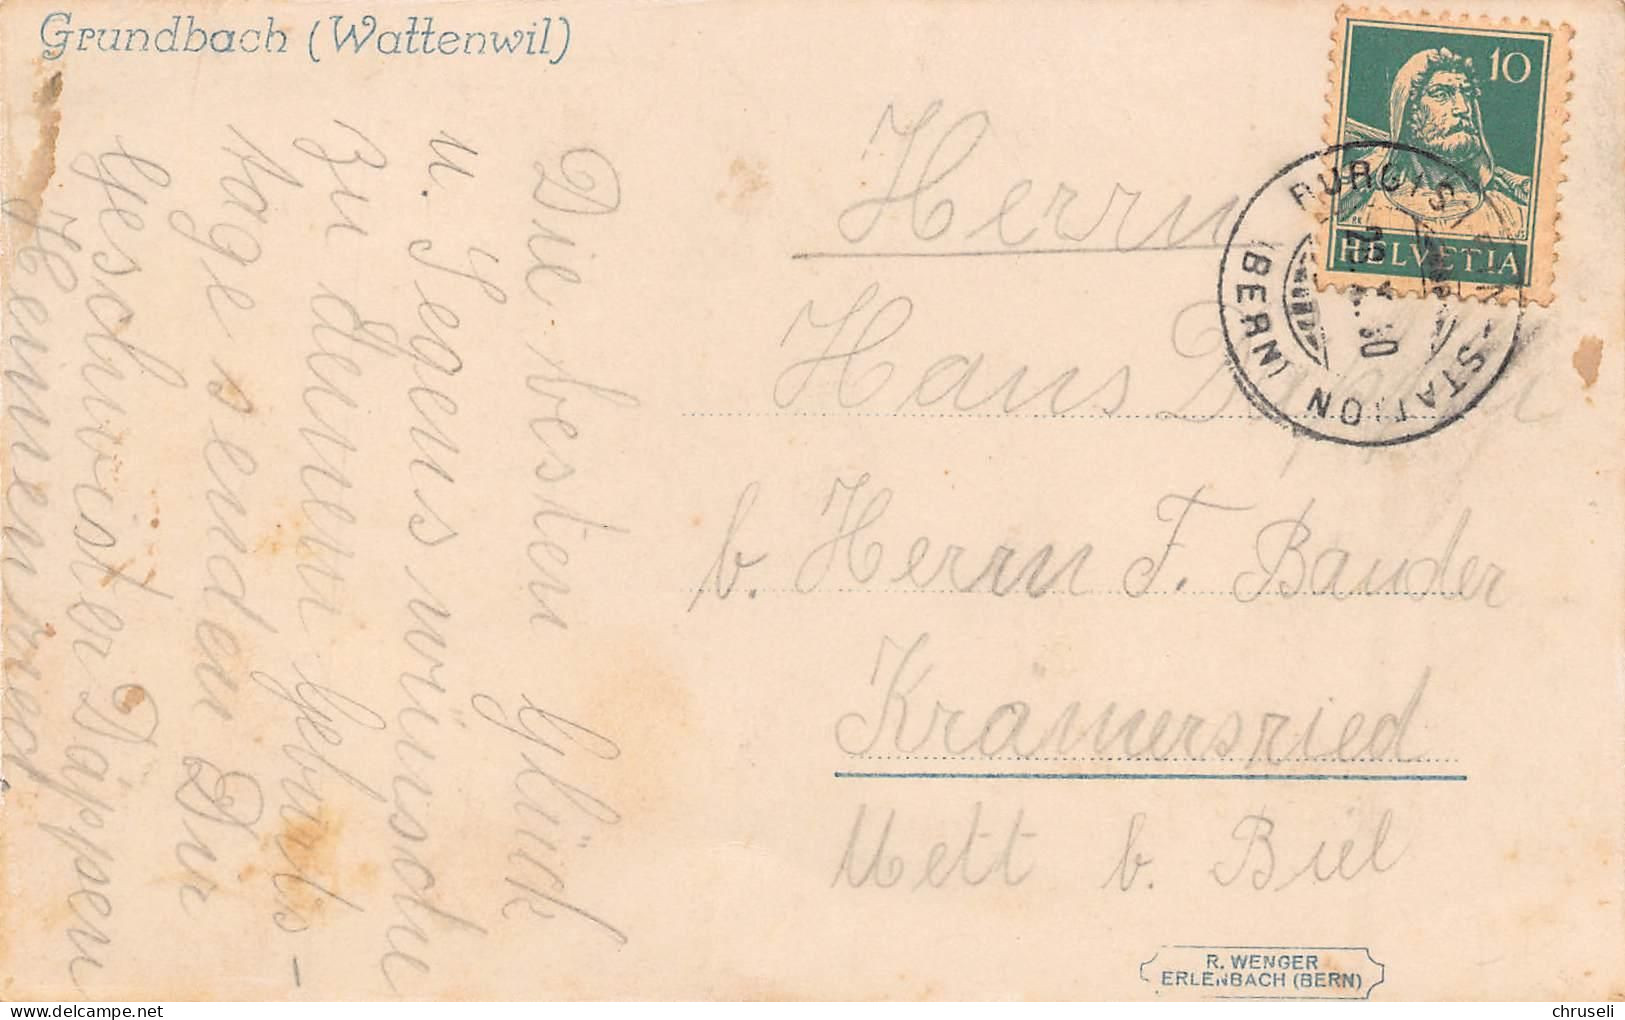 Grundbach (Wattenwil)
Die besten Glück
u. Segenswünsche
zu deinem Geburts-
tage senden Dir
Geschwister Däppen
10
HELVETIA
BURGISTEIN-STATION (BERN)
Herrn
Hans Däppen
b. Herrn F. Bauder
Krämersried
Mett b. Biel
R. WENGER
ERLENBACH (BERN)
chruseli